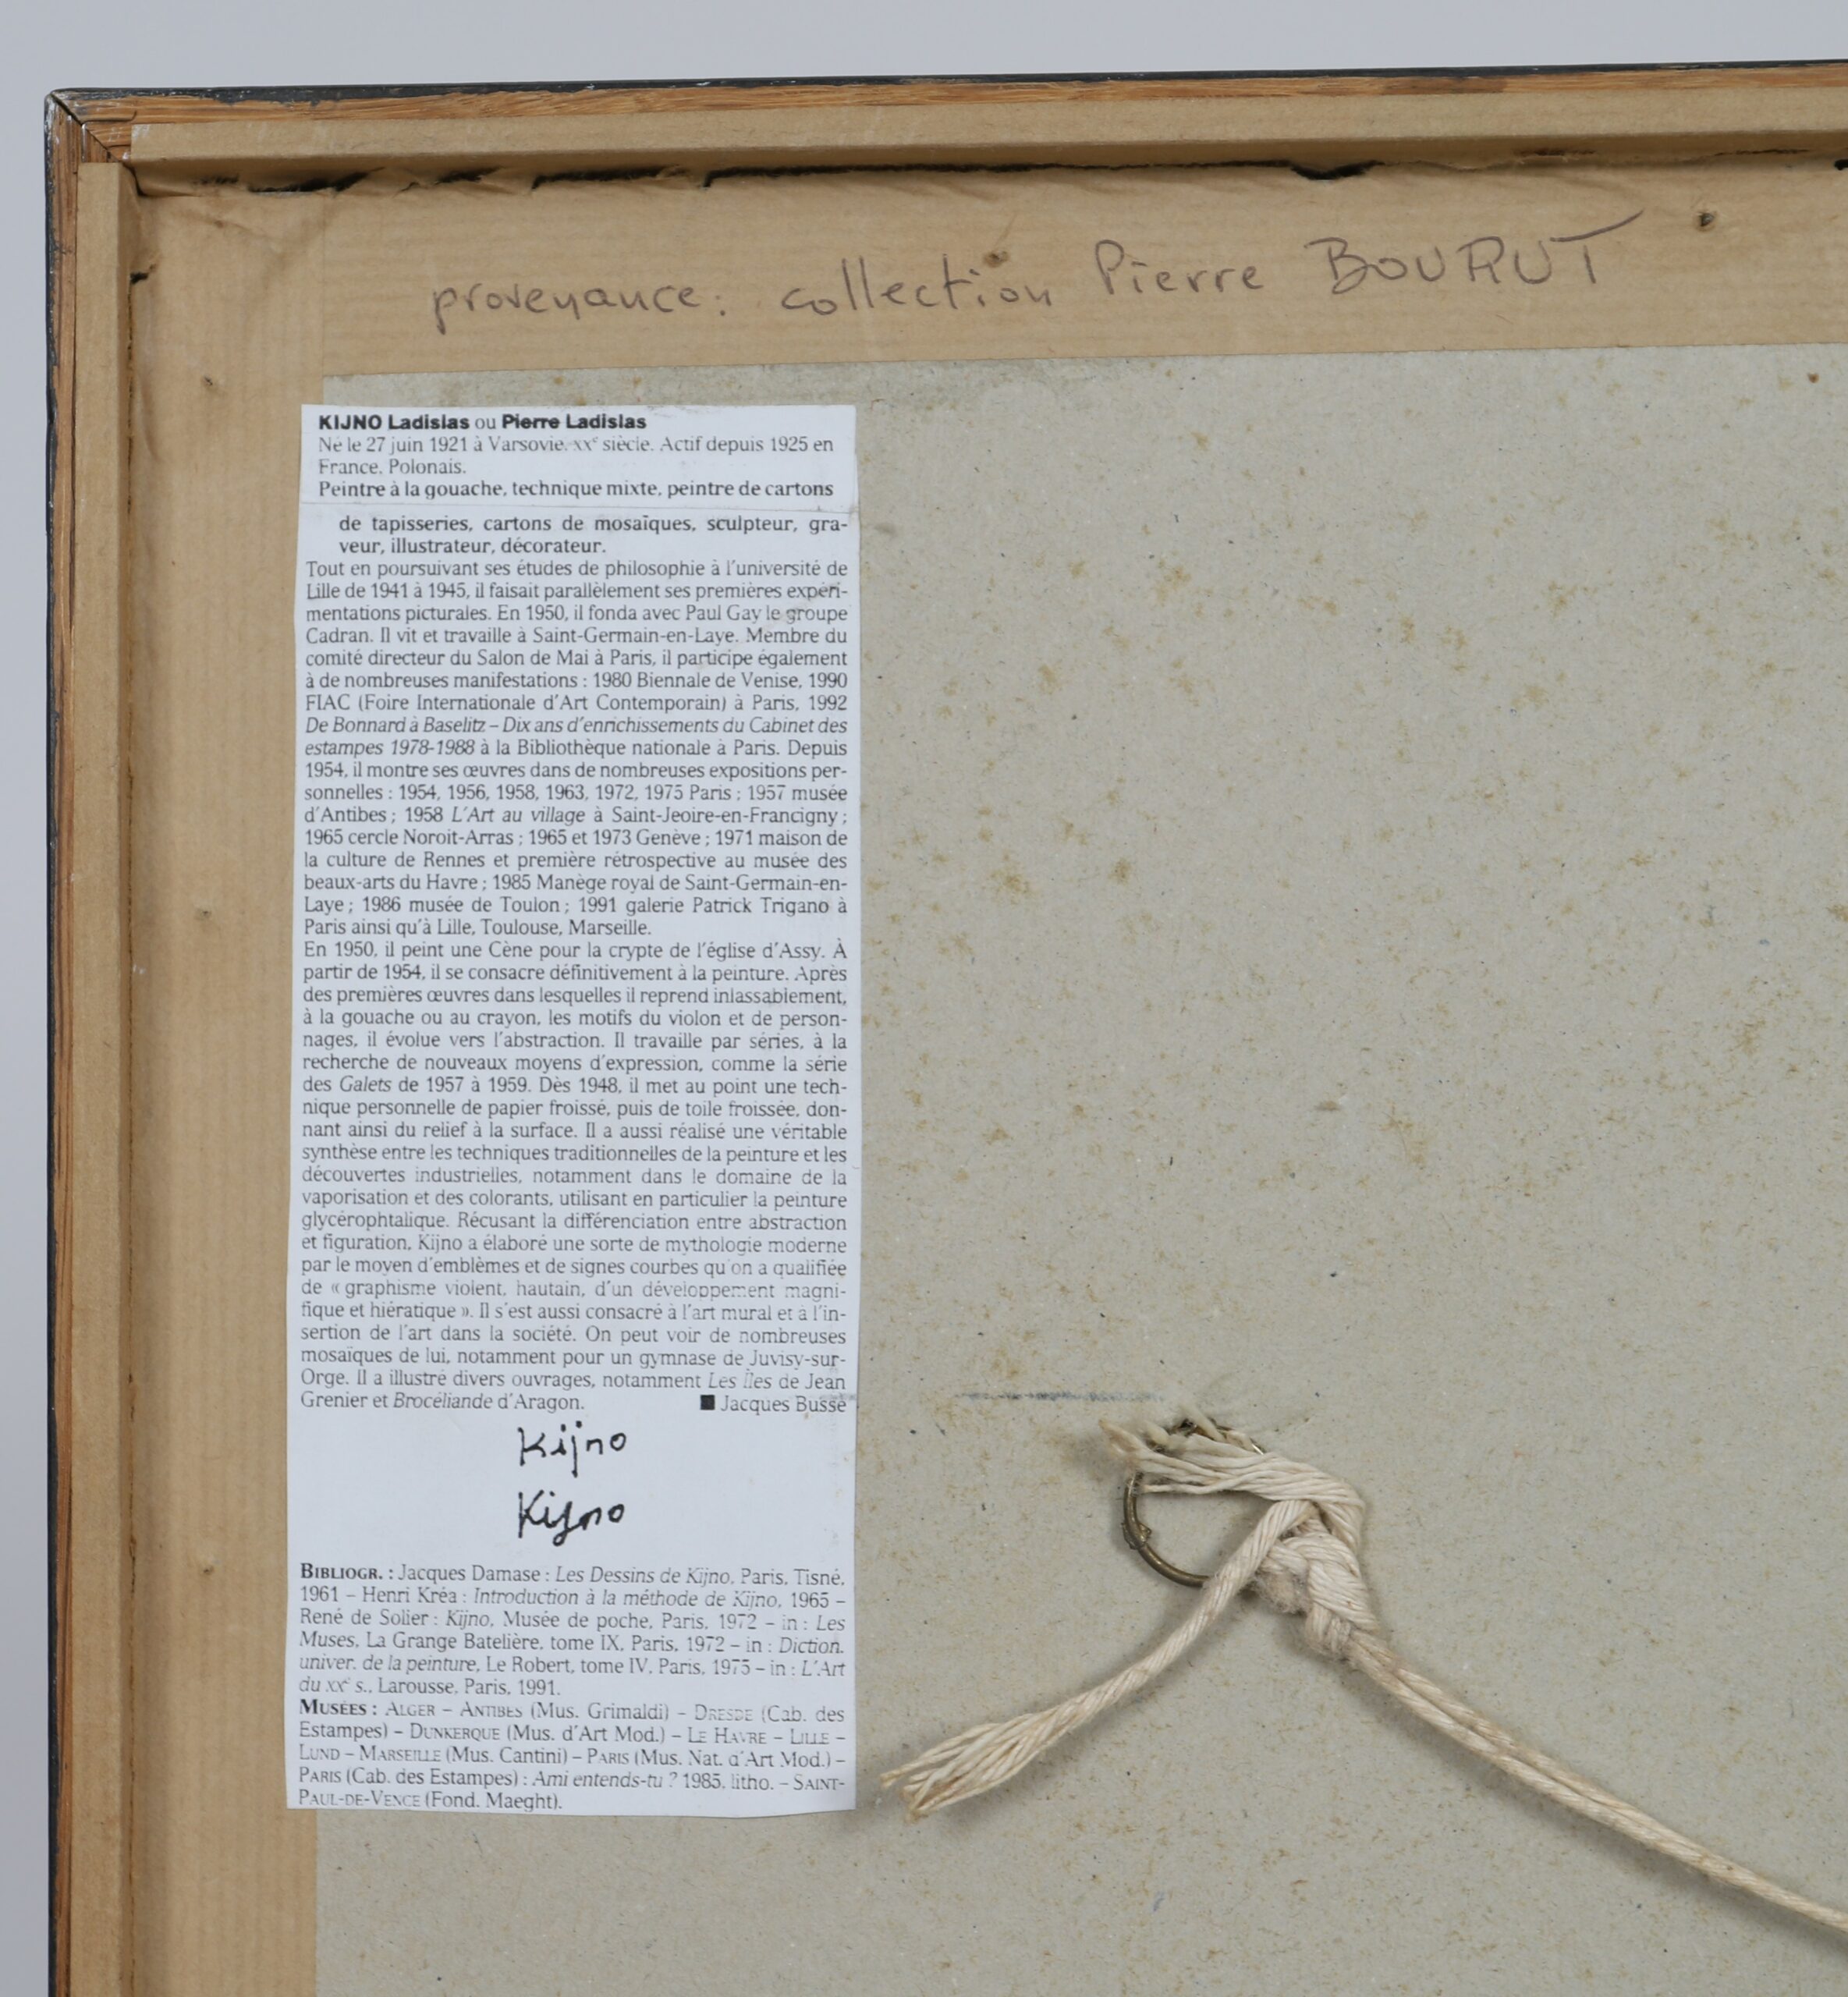 provenance: collection Pierre BOURUT
KIJNO Ladislas ou Pierre Ladislas
Né le 27 juin 1921 à Varsovie. XXe siècle. Actif depuis 1925 en
France. Polonais.
Peintre à la gouache, technique mixte, peintre de cartons
de tapisseries, cartons de mosaïques, sculpteur, gra-
veur, illustrateur, décorateur.
Tout en poursuivant ses études de philosophie à l'université de
Lille de 1941 à 1945, il faisait parallèlement ses premières expéri-
mentations picturales. En 1950, il fonda avec Paul Gay le groupe
Cadran. Il vit et travaille à Saint-Germain-en-Laye. Membre du
comité directeur du Salon de Mai à Paris, il participe également
à de nombreuses manifestations : 1980 Biennale de Venise, 1990
FIAC (Foire Internationale d'Art Contemporain) à Paris, 1992
De Bonnard à Baselitz – Dix ans d'enrichissements du Cabinet des
estampes 1978-1988 à la Bibliothèque nationale à Paris. Depuis
1954, il montre ses œuvres dans de nombreuses expositions per-
sonnelles : 1954, 1956, 1958, 1963, 1972, 1975 Paris ; 1957 musée
d'Antibes ; 1958 L'Art au village à Saint-Jeoire-en-Francigny ;
1965 cercle Noroit-Arras ; 1965 et 1973 Genève ; 1971 maison de
la culture de Rennes et première rétrospective au musée des
beaux-arts du Havre ; 1985 Manège royal de Saint-Germain-en-
Laye ; 1986 musée de Toulon ; 1991 galerie Patrick Trigano à
Paris ainsi qu'à Lille, Toulouse, Marseille.
En 1950, il peint une Cène pour la crypte de l'église d'Assy. À
partir de 1954, il se consacre définitivement à la peinture. Après
des premières œuvres dans lesquelles il reprend inlassablement,
à la gouache ou au crayon, les motifs du violon et de person-
nages, il évolue vers l'abstraction. Il travaille par séries, à la
recherche de nouveaux moyens d'expression, comme la série
des Galets de 1957 à 1959. Dès 1948, il met au point une tech-
nique personnelle de papier froissé, puis de toile froissée, don-
nant ainsi du relief à la surface. Il a aussi réalisé une véritable
synthèse entre les techniques traditionnelles de la peinture et les
découvertes industrielles, notamment dans le domaine de la
vaporisation et des colorants, utilisant en particulier la peinture
glycérophtalique. Récusant la différenciation entre abstraction
et figuration, Kijno a élaboré une sorte de mythologie moderne
par le moyen d'emblèmes et de signes courbes qu'on a qualifiée
de « graphisme violent, hautain, d'un développement magni-
fique et hiératique ». Il s'est aussi consacré à l'art mural et à l'in-
sertion de l'art dans la société. On peut voir de nombreuses
mosaïques de lui, notamment pour un gymnase de Juvisy-sur-
Orge. Il a illustré divers ouvrages, notamment Les Îles de Jean
Grenier et Brocéliande d'Aragon. ■ Jacques Busse
Kijno
Kijno
BIBLIOGR. : Jacques Damase : Les Dessins de Kijno, Paris, Tisné,
1961 – Henri Kréa : Introduction à la méthode de Kijno, 1965 –
René de Solier : Kijno, Musée de poche, Paris, 1972 – in : Les
Muses, La Grange Batelière, tome IX, Paris, 1972 – in : Diction.
univer. de la peinture, Le Robert, tome IV, Paris, 1975 – in : L'Art
du XXe s., Larousse, Paris, 1991.
MUSÉES : ALGER – ANTIBES (Mus. Grimaldi) – DRESDE (Cab. des
Estampes) – DUNKERQUE (Mus. d'Art Mod.) – LE HAVRE – LILLE –
LUND – MARSEILLE (Mus. Cantini) – PARIS (Mus. Nat. d'Art Mod.) –
PARIS (Cab. des Estampes) : Ami entends-tu ? 1985, litho. – SAINT-
PAUL-DE-VENCE (Fond. Maeght).